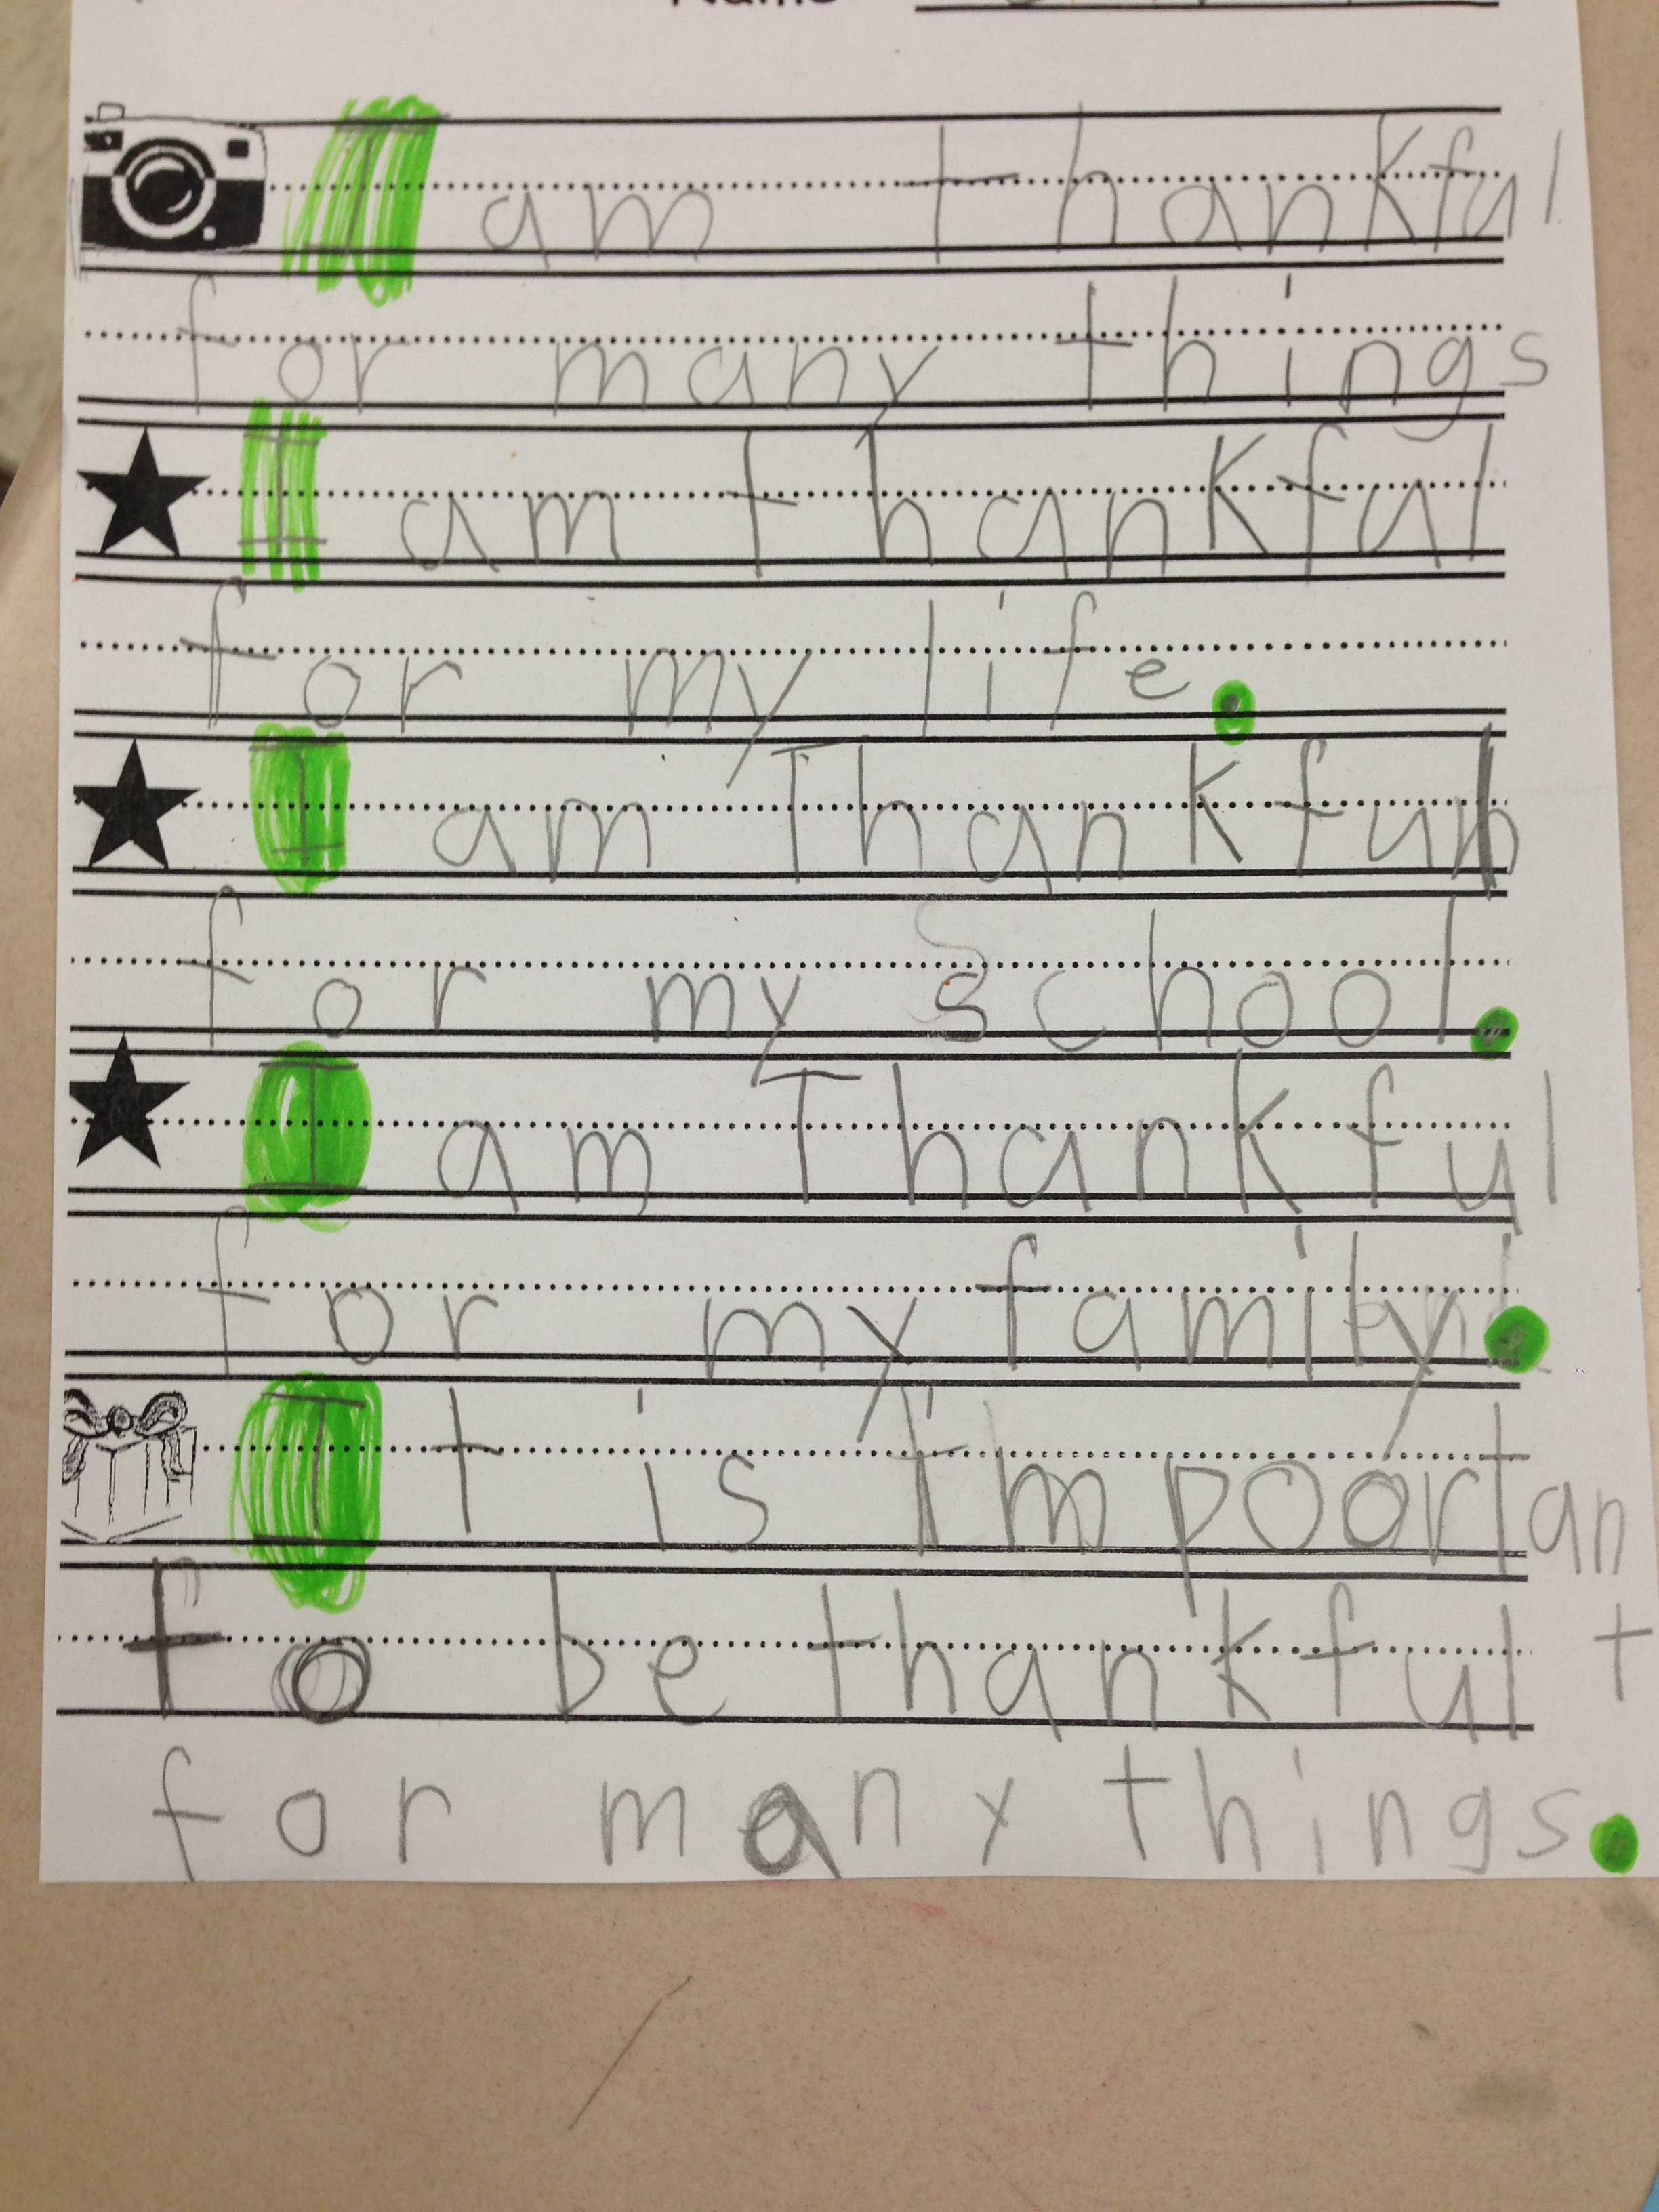 Name
I am thankful
for many things
I am thankful
for my life.
I am Thankful
for my school.
I am Thankful
for my family.
It is Impoortant
to be thankful
for many things.